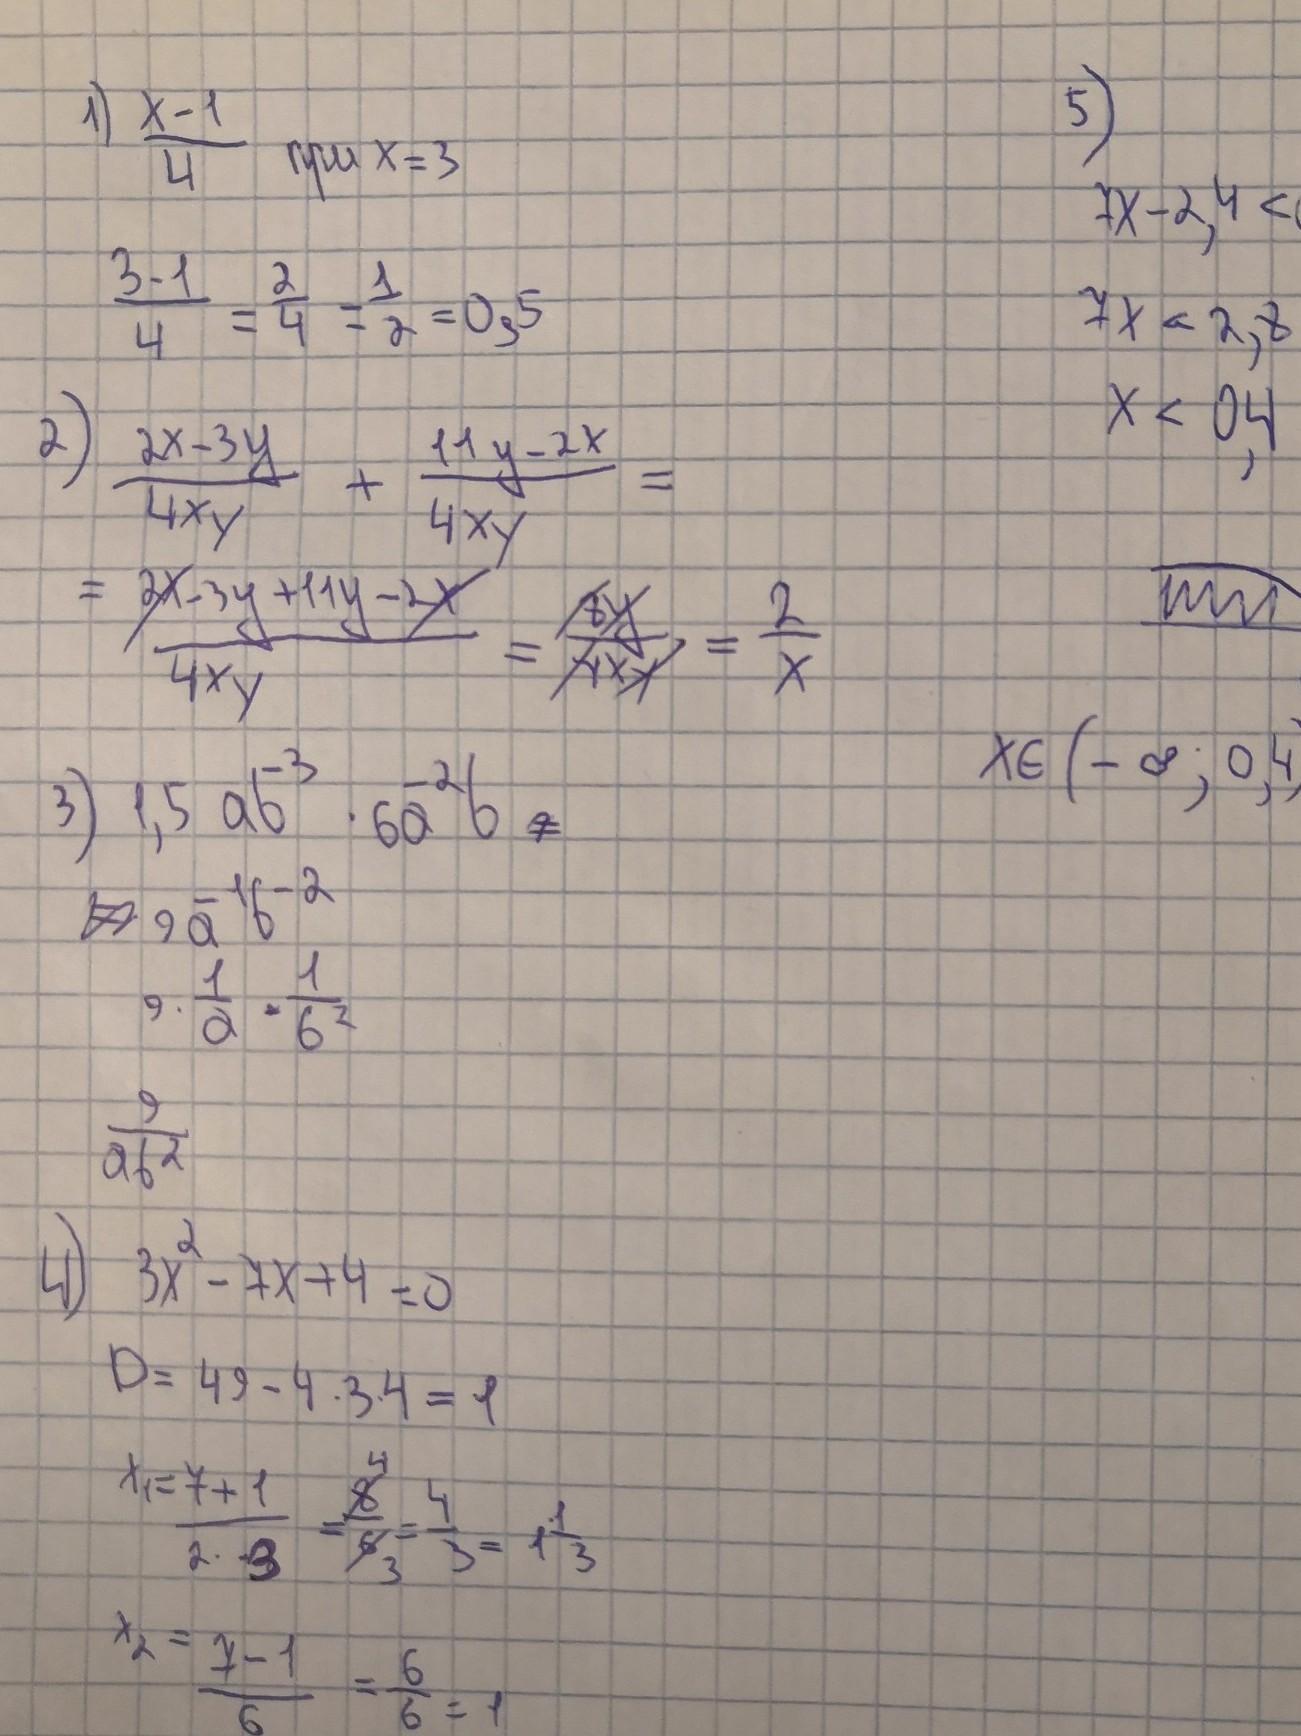 1) (x-1)/4 при x=3
(3-1)/4 = 2/4 = 1/2 = 0,5
2) (2x-3y)/(4xy) + (11y-2x)/(4xy) =
= (2x-3y+11y-2x)/(4xy) = 8y/(4xy) = 2/x
3) 1,5 ab⁻³ · 6a⁻²b =
= 9a⁻¹b⁻²
9 · 1/a · 1/b²
9/(ab²)
4) 3x² - 7x + 4 = 0
D = 49 - 4·3·4 = 1
x₁ = (7+1)/(2·3) = 8/6 = 4/3 = 1 1/3
x₂ = (7-1)/6 = 6/6 = 1
5)
7x - 2,4 <
7x < 2,8
x < 0,4
x∈(-∞; 0,4)